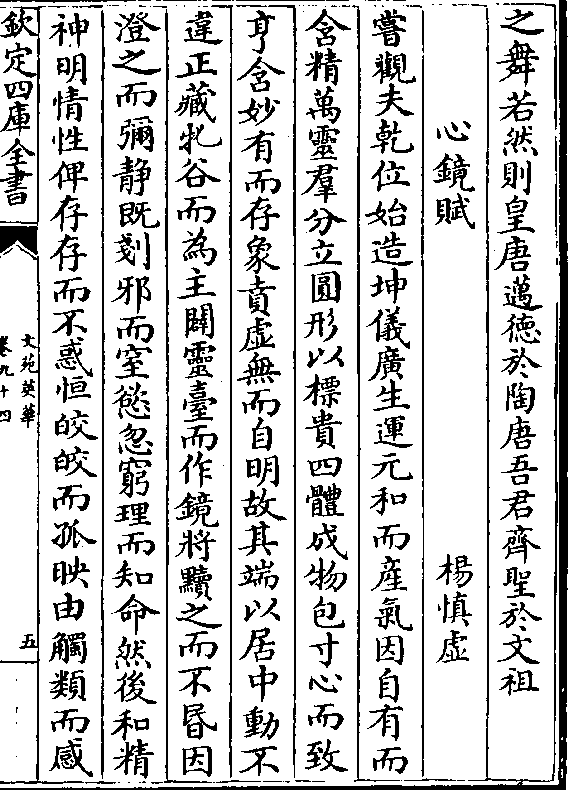 之舞若然則皇唐邁德於陶唐吾君齊聖於文祖
心鏡賦 楊慎虛
嘗觀夫乾位始造坤儀廣生運元和而產氣因自有而
含精萬靈羣分立圓形以標貴四體成物包寸心而致
亨含妙有而存象賁虛無而自明故其端以居中動不
違正藏牝谷而為主闢靈臺而作鏡將黷之而不昏因
澄之而彌静既剗邪而窒慾忽窮理而知命然後和精
神明情性俾存存而不惑恒皎皎而孤映由觸類而感
欽定四庫全書
文苑英華
卷九十四
五